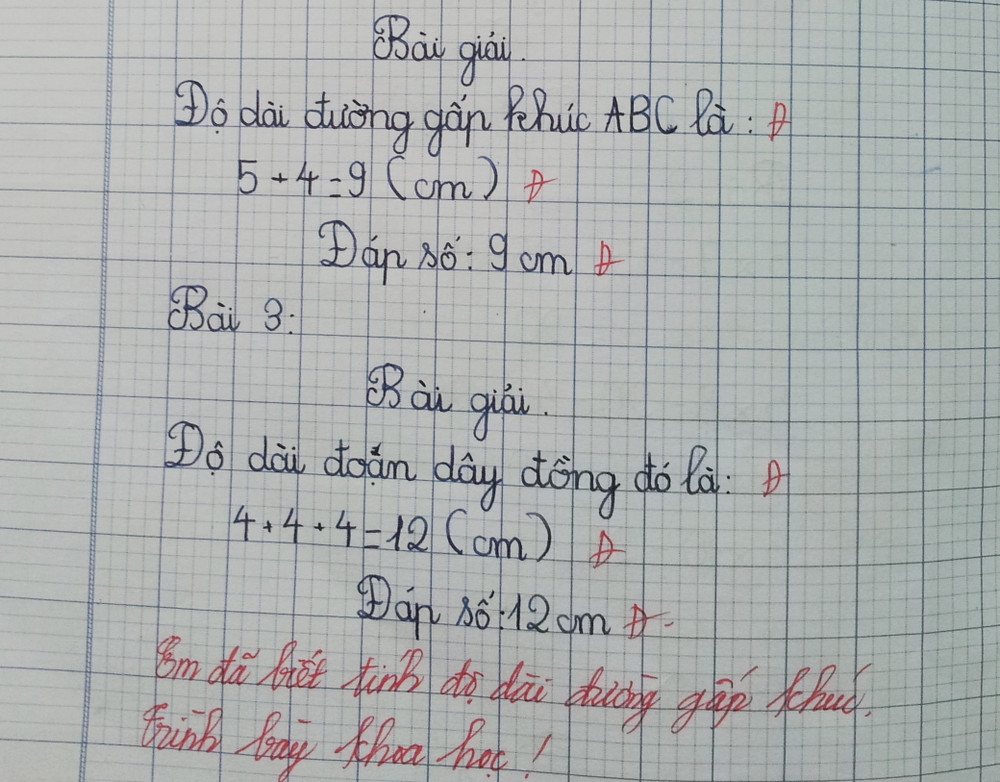 Bài giải.
Độ dài đường gấp khúc ABC là: Đ
5 + 4 = 9 (cm) Đ
Đáp số: 9 cm Đ
Bài 3:
Bài giải.
Độ dài đoạn dây đồng đó là: Đ
4 + 4 + 4 = 12 (cm) Đ
Đáp số: 12 cm Đ
Em đã biết tính độ dài đường gấp khúc.
Trình bày khoa học!